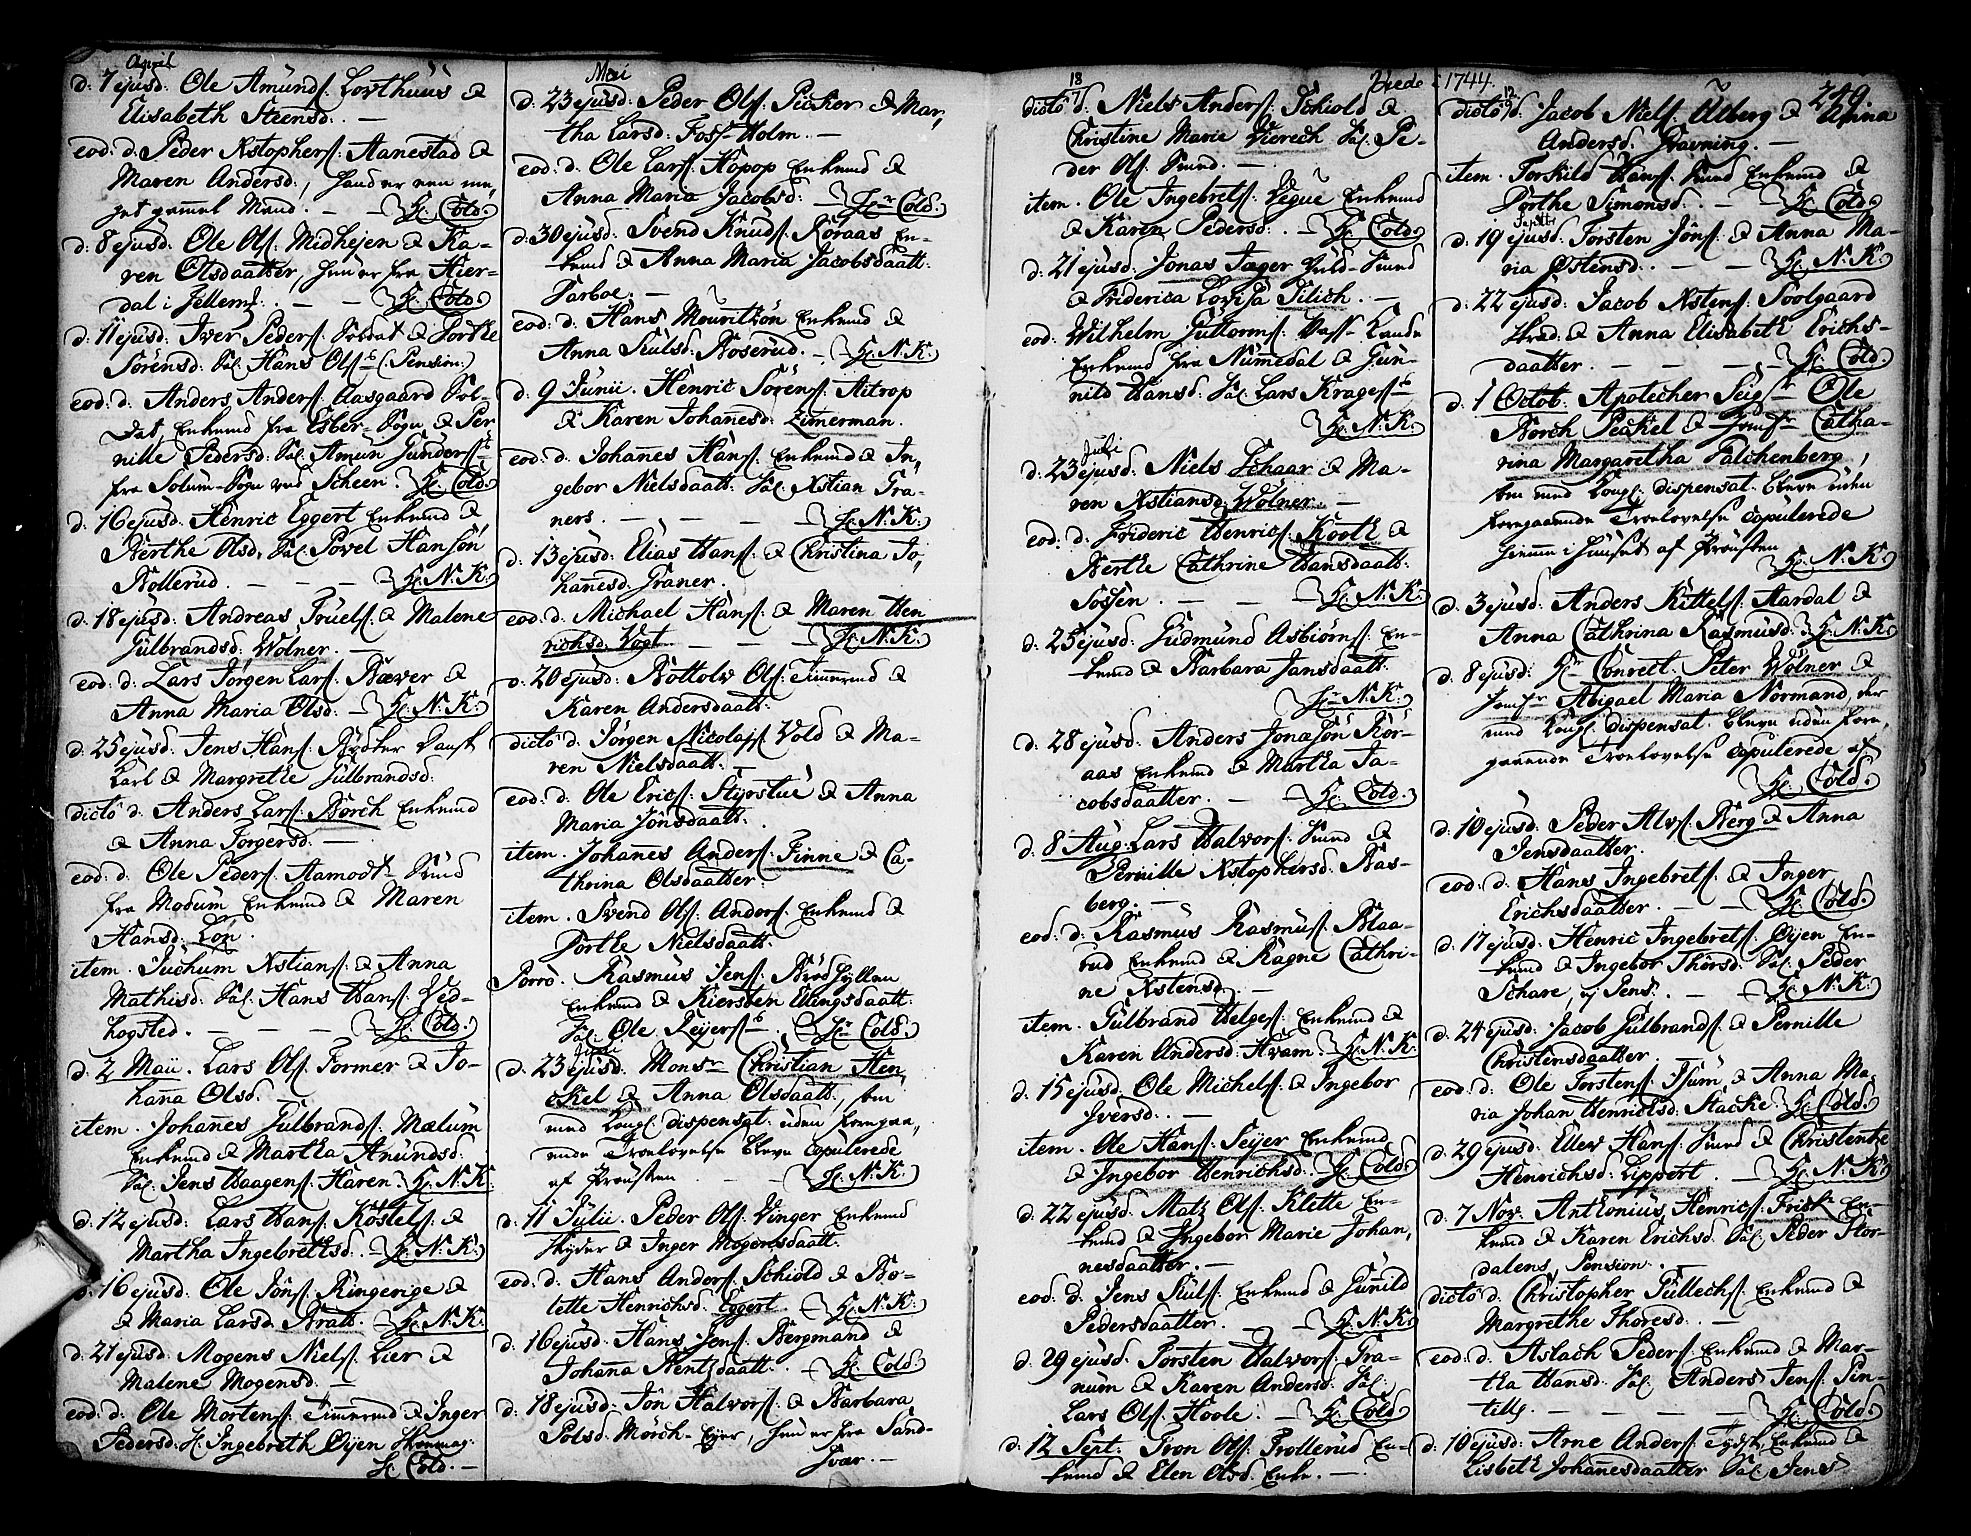 April
d: 7 ejusd: Ole Amunds: Lorthuus &
Elisabeth Steensd: —
eod: d: Peder Xstophers: Aanestad &
Maren Andersd:, hand er een me,
get gammel Mand. — Hr: Cold.
d: 8 ejusd: Ole Ols: Midhejen & Ka-
ren Olsdaatter, hun er fra Hier-
dal i Tellem: — — Hr: Cold
d: 11 ejusd: Iver Peders: Soldat & Dorthe
Sörensd: Sal: Hans Ols: (Pension:)
eod: d: Anders Anders: Aasgaard Sol-
dat, Enkemd fra Esber-Sogn & Per
nille Pedersd: Sal: Amun Gunders:
fra Solum-Sogn ved Scheen: Hr: Cold
d: 16 ejusd: Henric Eggert Enkemd &
Berthe Olsd, Sal: Povel Hansön
Bollerud. — — — Hr: N: K:
d: 18 ejusd: Andreas Truels: & Malene
Gulbrandsd: Wölner. —
eod: d: Lars Jörgen Lars: Bæver &
Anna Maria Olsd: — Hr: N: K:
d: 25 ejusd: Jens Hans: Brÿdker Dansk
Karl & Margrethe Gulbrandsd:
dicto d: Anders Lars: Borch Enkemd
& Anna Torgersd: —
eod: d: Ole Peders: Aamodt-Bund
fra Modum Enkemd & Maren
Hansd: Lön.
item. Juchum Xstians: & Anna
Mathisd: Sal: Hans Hans: Ved-
hogsted. — — — Hr: Cold
d: 2 Maii. Lars Ols: Former & Jo-
hana Olsd: —
item. Johanes Gulbrands: Mælum
Enkemd & Martha Amundsd:
Sal: Jens Haagens: Haren: Hr: N: K:
d: 12 ejusd: Lars Hans: Köstels: &
Martha Ingebrethsd: Hr: N: K:
d: 16 ejusd: Ole Jöns: Ringerige &
& Maria Larsd: Brath: Hr: N: K:
d: 21 ejusd: Mogens Niels: Lier &
Malene Mogensd: —
eod: d: Ole Mortens: Timermd & Inger
Pedersd: Sl: Ingebreth Öÿen Skomag:
Hr: Cold. —
Mai
d: 23 ejusd: Peder Ols: Picker & Mar,
tha Larsd: Foss-Holm. —
eod: d: Ole Lars: Hopop Enkemd &
Anna Maria Jacobsd: — Hr: Cold.
d: 30 ejusd: Svend Knuds: Röraas En-
kemd & Anna Maria Jacobsdaatt:
Farboe. —
eod: d: Hans Mouritzön Enkemd &
Anna Siulsd: Boserud. — Hr: N: K:
d. 9 Junii. Henric Sörens: Aitrop
& Karen Johanesd: Zimerman.
eod: d: Johanes Hans: Enkemd & In,
gebor Nielsdaatt: Sal: Xstian Tra-
ners. — — — Hr: N: K:
d: 13 ejusd: Elias Hans: & Christina Jo,
hanesd: Traner.
eod: d: Michael Hans: & Maren Hen
richsd: Vogt — — Hr: N: K:
d: 20 ejusd: Bottolv Ols: Timermd &
Karen Andersdaatt:
dicto d: Jörgen Nicolajs: Vold & Ma-
ren Nielsdaatt: —
eod: d: Ole Erics: Styrstue & Anna
Maria Jönsdaatt:.
item. Johanes Anders: Finne & Ca-
thrina Olsdaatter.
item. Svend Ols: Anders: Enkemd &
Dorthe Nielsdaatt:
Porro. Rasmus Jens: Brødfylleu
Enkemd & Kiersten Ellingsdaatt:
Sal: Ole Reijers: Hr: Cold.
Junii
d: 23 ejusd: Monsr Christian Hen,
ckel & Anna Olsdaatt:, som
med Kongl: dispensat: uden foregaa,
ende Troelovelse bleve copulerede
af Prousten — — Hr: N: K:
d: 11 Julii. Peder Ols: Vinger Enkemd
Skyder & Inger Mogensdaatt:
eod: d: Hans Anders: Schiold & Bo-
lette Henrichsd: Eggert. Hr: N: K:
d: 16 ejusd: Hans Jens: Bergmand &
Johanna Hentzdaatt: Hr: Cold
d: 18 ejusd: Jön Halvors: & Barbara
Polsd: Mörch-Ejer, hun er fra Sand-
svær. —
18 Frede 1744.
dicto d: Niels Anders: Schiold &
Christine Marie Wiorech Sal: Pe-
der Ols: Smed. —
item. Ole Ingebrets: Vegue Enkemd
& Karen Pedersd: — Hr: Cold
d: 21 ejusd: Jonas Jæger Guld-Smed
& Friderica Lovisa Silich. —
eod: Wilhelm Guttorms: Vass-Kande
Enkemd fra Numedal & Gun-
nild Hansd: Sal: Lars Krages:
Hr: N: K:
Juli
d: 23 ejusd: Niels Schaar & Ma-
ren Xstiansd: Wölner. —
eod: d: Frideric Henrics: Kooth &
Berthe Cathrine Hansdaatt:
Sossen. — — Hr: N: K:
d: 25 ejusd: Gudmund Asbiörns: En-
kemd & Barbara Jansdaatt:
Hr: N: K:
d: 28 ejusd: Anders Jonasön Rör-
aas Enkemd & Martha Ja-
cobsdaatter. — Hr: Cold
d: 8 Aug: Lars Halvors: Smed &
Pernille Xstophersd: Bas-
berg. —
eod: d: Rasmus Rasmus: Blaa-
rud Enkemd & Ragne Cathri-
ne Xstensd: —
item. Gulbrand Helges: Enkemd &
Karen Andersd: Hvam: Hr: N: K:
d: 15 ejusd: Ole Michels: & Ingebor
Iversd: —
item. Ole Hans: Seijer Enkemd
& Ingebor Henrichsd: Hr: Cold
d: 22 ejusd: Matz Ols: Klette En-
kemd & Ingebor Marie Johan,
nesdaatter. —
eod: d: Jens Kuls: Enkemd & Gunild
Pedersdaatter. — Hr: N: K:
d: 29 ejusd: Torsten Halvors: Tra-
num & Karen Andersd: Sal:
Lars Ols: Hoole. — Hr: Cold
d: 12 Sept: Tron Ols: Trollerud En-
kemd & Elen Olsd: Enke. —
249.
dicto d: Jacob Niels: Alberg & Anna
Andersd: Gravning. —
item. Torkild Hans: Smed Enkemd &
Dorthe Simonsd: — Hr: Cold
Septbr
d: 19 ejusd: Torsten Jöns: & Anna Ma-
ria Östensd: — — Hr: N: K:
d: 22 ejusd: Jacob Xstens: Soolgaard
Skræd: & Anna Elisabeth Erichs-
daatter. — — — Hr: Cold
d: 1 Octob: Apotecher Seigr Ole
Borch Peckel & Jomfr Catha-
rina Margaretha Falchenberg,
som med Kongl: dispensat: bleve uden
foregaaende Troelovelse copulerede
hiemme i Huuset af Prousten
Hr: N: K:
d: 3 ejusd: Anders Kittels: Aardal &
Anna Cathrina Rasmusd: Hr: N: K:
d: 8 ejusd: Hr Conrect: Peter Wölner &
Jomfr Abigael Maria Normand, der
med Kongl: dispensat: bleve uden fore,
gaaende Troelovelse copulerede af
Hr: Cold.
d: 10 ejusd: Peder Alvs: Berg & Anna
Jensdaatter.
eod: d: Hans Ingebrets: & Inger
Erichsdaatter. — — Hr: Cold
d: 17 ejusd: Henric Ingebrets: Öijen En-
kemd & Ingebor Thorsd: Sal: Peder
Schare, ej Jens. — Hr: N: K:
d: 24 ejusd: Jacob Gulbrands: & Pernille
Christensdaatter.
eod: d: Ole Torstens: Tfum & Anna Ma,
ria Johan Henrichsd: Stacke: Hr: Cold
d: 29 ejusd: Ellev Hans: Smed & Christenthe
Henrichsd: Lippert. — Hr: N: K:
d: 7 Nov: Anthonius Henrics: Frisk En-
kemd & Karen Erichsd: Sal: Peder Stor-
dalens, Pension. —
dicto d: Christopher Tullechs: Enkemd &
Margrethe Thoresd: —
eod: d: Aslach Peders: Enkemd & Mar-
tha Hansd: Sal: Anders Jens: Pin-
tells. — — — Hr: Cold
d: 10 ejusd: Arne Anders: Tydsk, Enkemd &
Lisbeth Johannesdaatter Sal: Jens